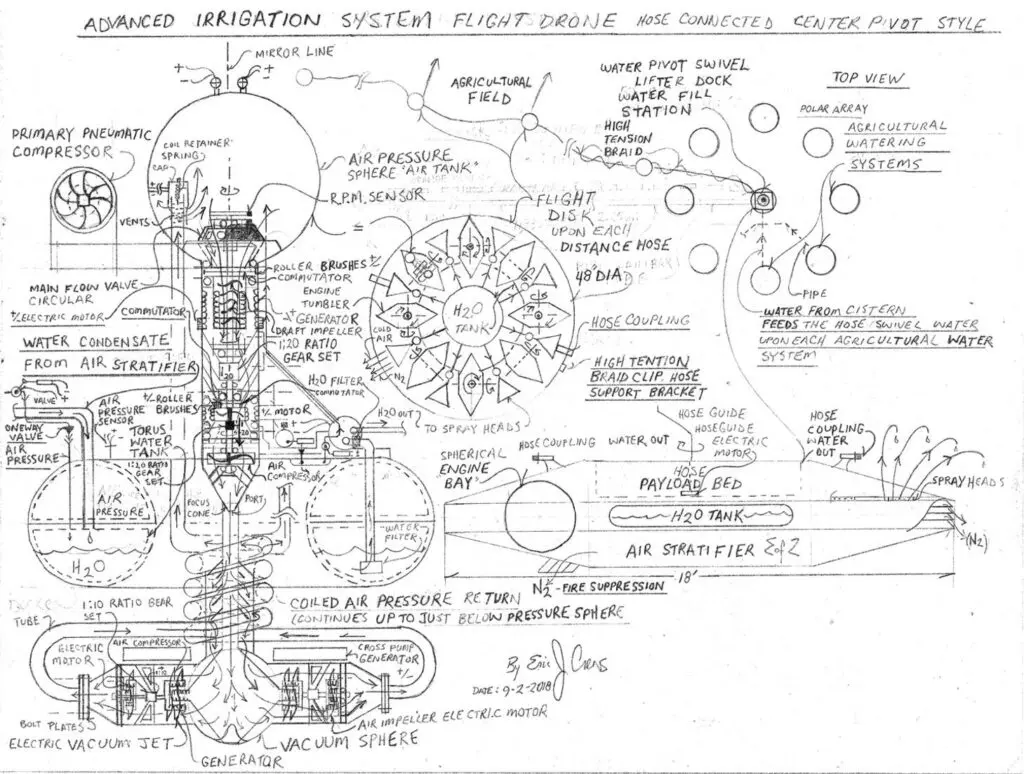 ADVANCED IRRIGATION SYSTEM FLIGHT DRONE HOSE CONNECTED CENTER PIVOT STYLE
MIRROR LINE
+
-
+
-
PRIMARY PNEUMATIC
COMPRESSOR
COIL RETAINER
SPRING
CAP
VENTS
AIR PRESSURE
SPHERE "AIR TANK"
R.P.M. SENSOR
MAIN FLOW VALVE
CIRCULAR
+/- ELECTRIC MOTOR
COMMUTATOR
ROLLER BRUSHES
COMMUTATOR
ENGINE
TUMBLER
GENERATOR
DRAFT IMPELLER
1:20 RATIO
GEAR SET
WATER CONDENSATE
FROM AIR STRATIFIER
H2O FILTER
COMMUTATOR
+/- ROLLER
BRUSHES
+/- MOTOR
H2O OUT
VALVE
AIR
PRESSURE
SENSOR
ONEWAY
VALVE
AIR
PRESSURE
TORUS
WATER
TANK
1:20 RATIO
GEAR
SET
AIR
COMPRESSOR
FOCUS
CONE
PORT
AIR
PRESSURE
H2O
WATER
FILTER
COILED AIR PRESSURE RETURN
(CONTINUES UP TO JUST BELOW PRESSURE SPHERE
TUBE
1:10 RATIO GEAR
SET
ELECTRIC
MOTOR
AIR COMPRESSOR
CROSS PUMP
GENERATOR
+/-
BOLT PLATES
ELECTRIC VACUUM JET
GENERATOR
VACUUM SPHERE
AIR IMPELLER ELECTRIC MOTOR
By Eric J Cords
DATE: 9-2-2018
AGRICULTURAL
FIELD
WATER PIVOT SWIVEL
LIFTER DOCK
WATER FILL
STATION
HIGH
TENSION
BRAID
TOP VIEW
POLAR ARRAY
AGRICULTURAL
WATERING
SYSTEMS
PIPE
WATER FROM CISTERN
FEEDS THE HOSE/SWIVEL WATER
UPON EACH AGRICULTURAL WATER
SYSTEM
FLIGHT
DISK
UPON EACH
DISTANCE HOSE
48' DIA
H2O
TANK
COLD
AIR
N2
HOSE COUPLING
HIGH TENTION
BRAID CLIP. HOSE
SUPPORT BRACKET
TO SPRAY HEADS
HOSE GUIDE
HOSEGUIDE
ELECTRIC
MOTOR
HOSE COUPLING
WATER OUT
HOSE
COUPLING
WATER
OUT
SPHERICAL
ENGINE
BAY
HOSE
PAYLOAD BED
H2O TANK
AIR STRATIFIER
SPRAY HEADS
(N2)
18'
N2 - FIRE SUPPRESSION